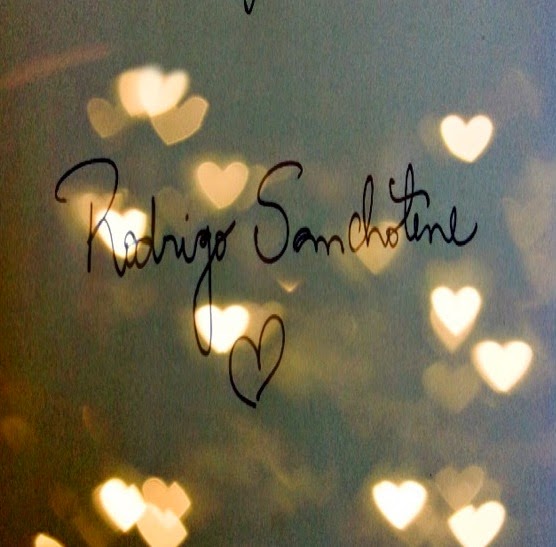 Rodrigo Sanchotene